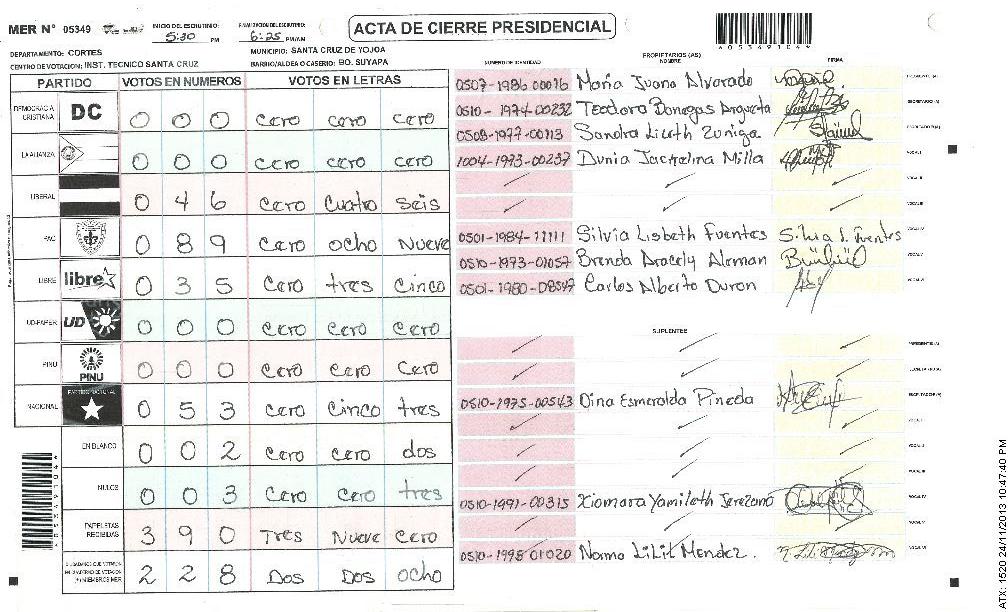 MER N° 05349
INICIO DEL ESCRUTINIO: 5:30 PM
FINALIZACION DEL ESCRUTINIO: 6:25 PM/AM
ACTA DE CIERRE PRESIDENCIAL
DEPARTAMENTO: CORTES
MUNICIPIO: SANTA CRUZ DE YOJOA
CENTRO DE VOTACION: INST. TECNICO SANTA CRUZ
BARRIO/ALDEA O CASERIO: BO. SUYAPA
PARTIDO VOTOS EN NUMEROS VOTOS EN LETRAS
DEMOCRACIA CRISTIANA DC 0 0 0 cero cero cero
LA ALIANZA 0 0 0 cero cero cero
LIBERAL 0 4 6 cero cuatro seis
PAC 0 8 9 cero ocho nueve
LIBRE libre 0 3 5 cero tres cinco
UD-FAPER UD 0 0 0 cero cero cero
PINU PINU 0 0 0 cero cero cero
NACIONAL PARTIDO NACIONAL 0 5 3 cero cinco tres
EN BLANCO 0 0 2 cero cero dos
NULOS 0 0 3 cero cero tres
PAPELETAS RECIBIDAS 3 9 0 Tres Nueve cero
CIUDADANOS QUE VOTARON EN CUADERNO DE VOTACION Y MIEMBROS MER 2 2 8 Dos Dos ocho
PROPIETARIOS (AS)
NUMERO DE IDENTIDAD NOMBRE FIRMA
0507-1986 00076 Maria Juana Alvarado PRESIDENTE (A)
0510-1974-00232 Teodoro Banegas Argueta SECRETARIO (A)
0508-1977-00113 Sandra Lizeth Zuniga ESCRUTADOR (A)
1004-1973-00237 Dunia Jackelina Milla VOCAL I
VOCAL II
VOCAL III
0501-1984-11111 Silvia Lisbeth Fuentes Silvia L. Fuentes VOCAL IV
0510-1973-01057 Brenda Aracely Aleman VOCAL V
0501-1980-08547 Carlos Alberto Duron VOCAL VI
SUPLENTES
PRESIDENTE (A)
SECRETARIO (A)
0510-1975-00543 Dina Esmeralda Pineda ESCRUTADOR (A)
VOCAL I
VOCAL II
VOCAL III
0510-1991-00315 Xiomara Yamileth Jerezano VOCAL IV
VOCAL V
0510-1995 01020 Norma Lilit Mendez. VOCAL VI
ATX: 1520 24/11/2013 10:47:40 PM